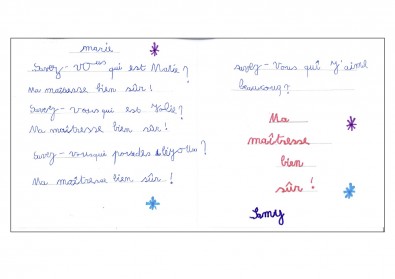 marie
Savez-vous qui est Marie?
Ma maîtresse bien sûr!
Savez-vous qui est Jolie?
Ma maîtresse bien sûr!
Savez-vous qui possède
Ma maîtresse bien sûr!
savez-vous qui j'aime
beaucoup?
Ma
maîtresse
bien
sûr!
Samy